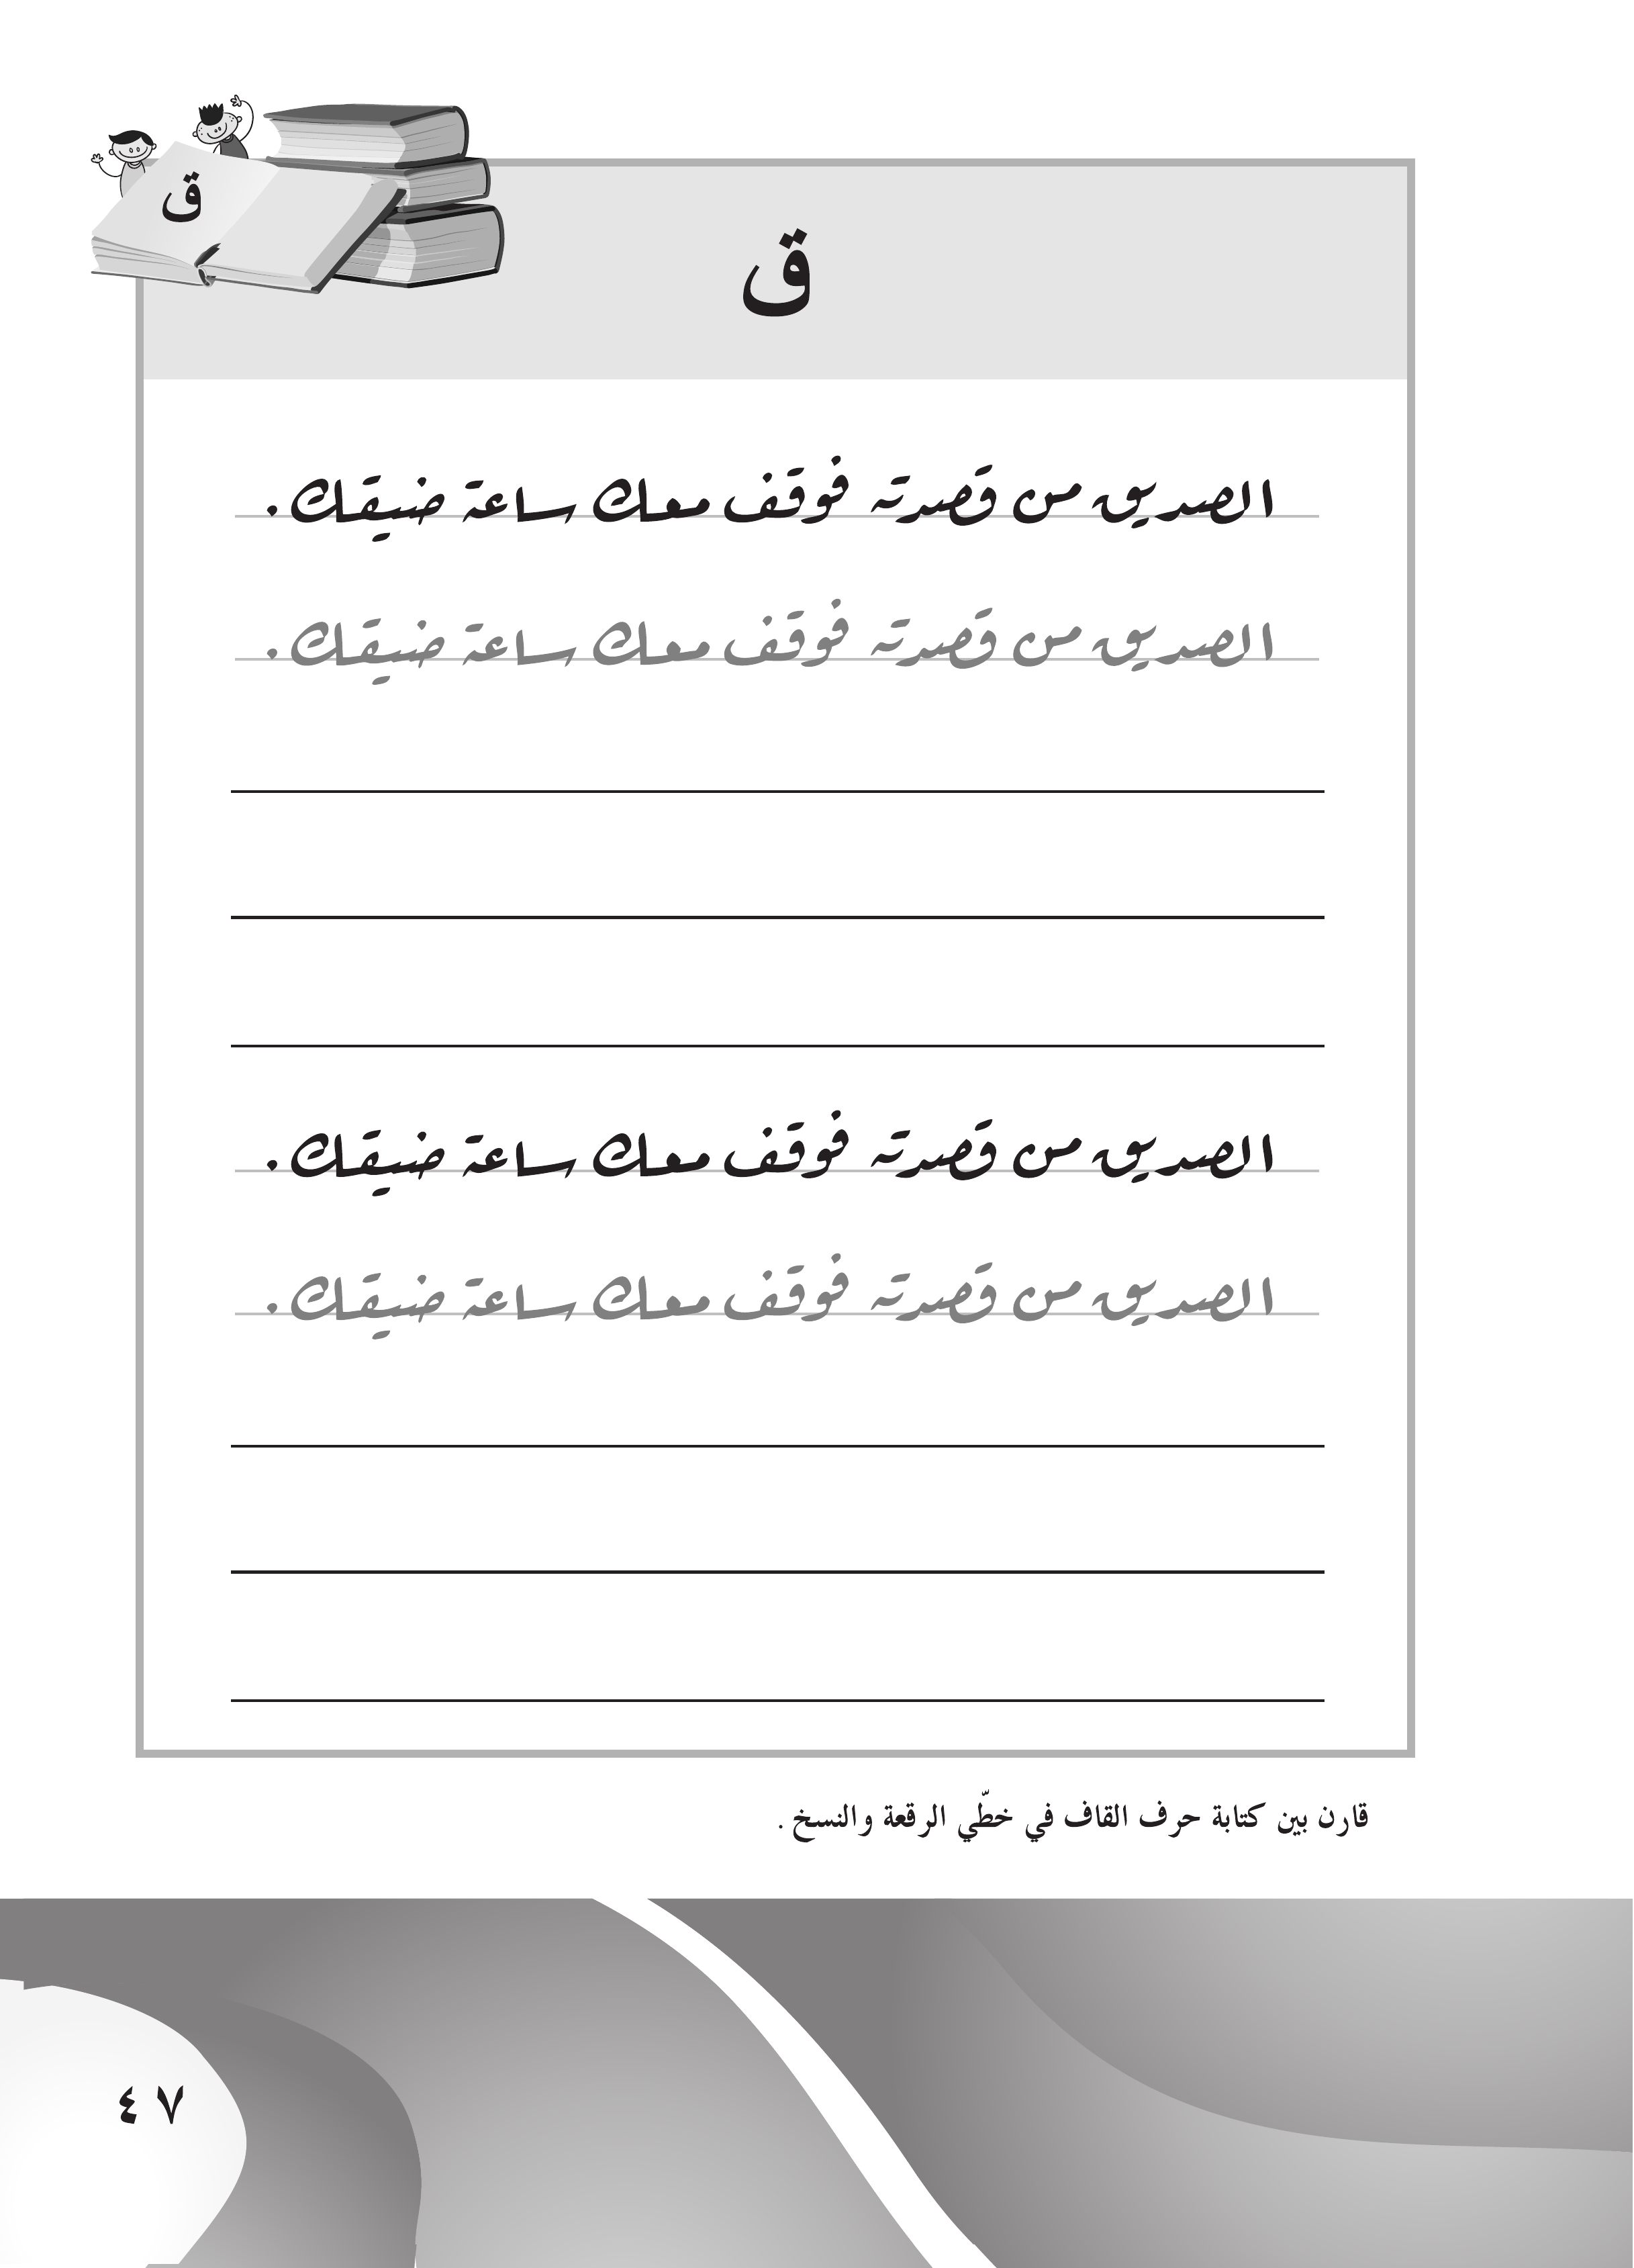 ق
ق
الصديق من قصدته فوقف معك ساعة ضيقك.
الصديق من قصدته فوقف معك ساعة ضيقك.
الصديق من قصدته فوقف معك ساعة ضيقك.
الصديق من قصدته فوقف معك ساعة ضيقك.
قارن بين كتابة حرف القاف في خطّي الرقعة والنسخ .
٤٧